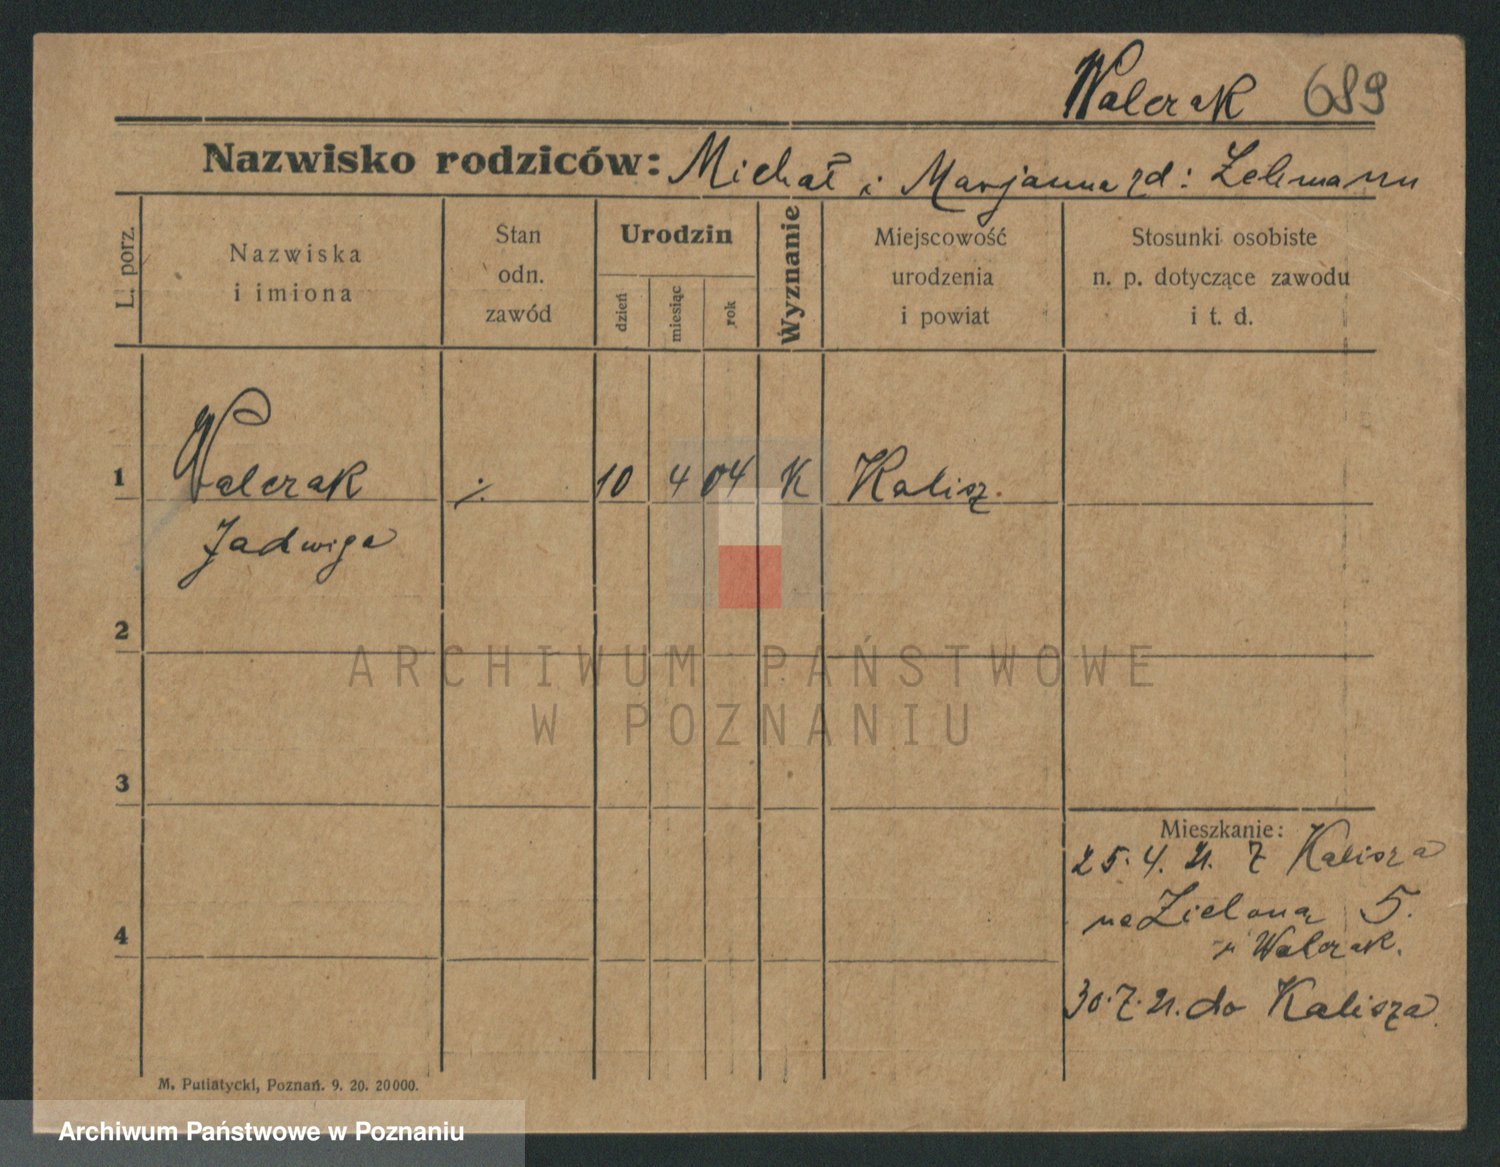 Walczak 689
Nazwisko rodziców: Michał i Marjanna zd: Lehmann
L. porz.
Nazwiska
i imiona
Stan
odn.
zawód
Urodzin
dzień
miesiąc
rok
Wyznanie
Miejscowość
urodzenia
i powiat
Stosunki osobiste
n. p. dotyczące zawodu
i t. d.
1 Walczak ./. 10 4 04 K Kalisz.
Jadwiga
2
3
4
ARCHIWUM PAŃSTWOWE
W POZNANIU
Mieszkanie:
25.4.21. z Kalisza
na Zieloną 5.
Walczak.
30.7.21. do Kalisza
M. Putiatycki, Poznań. 9. 20. 20000.
Archiwum Państwowe w Poznaniu